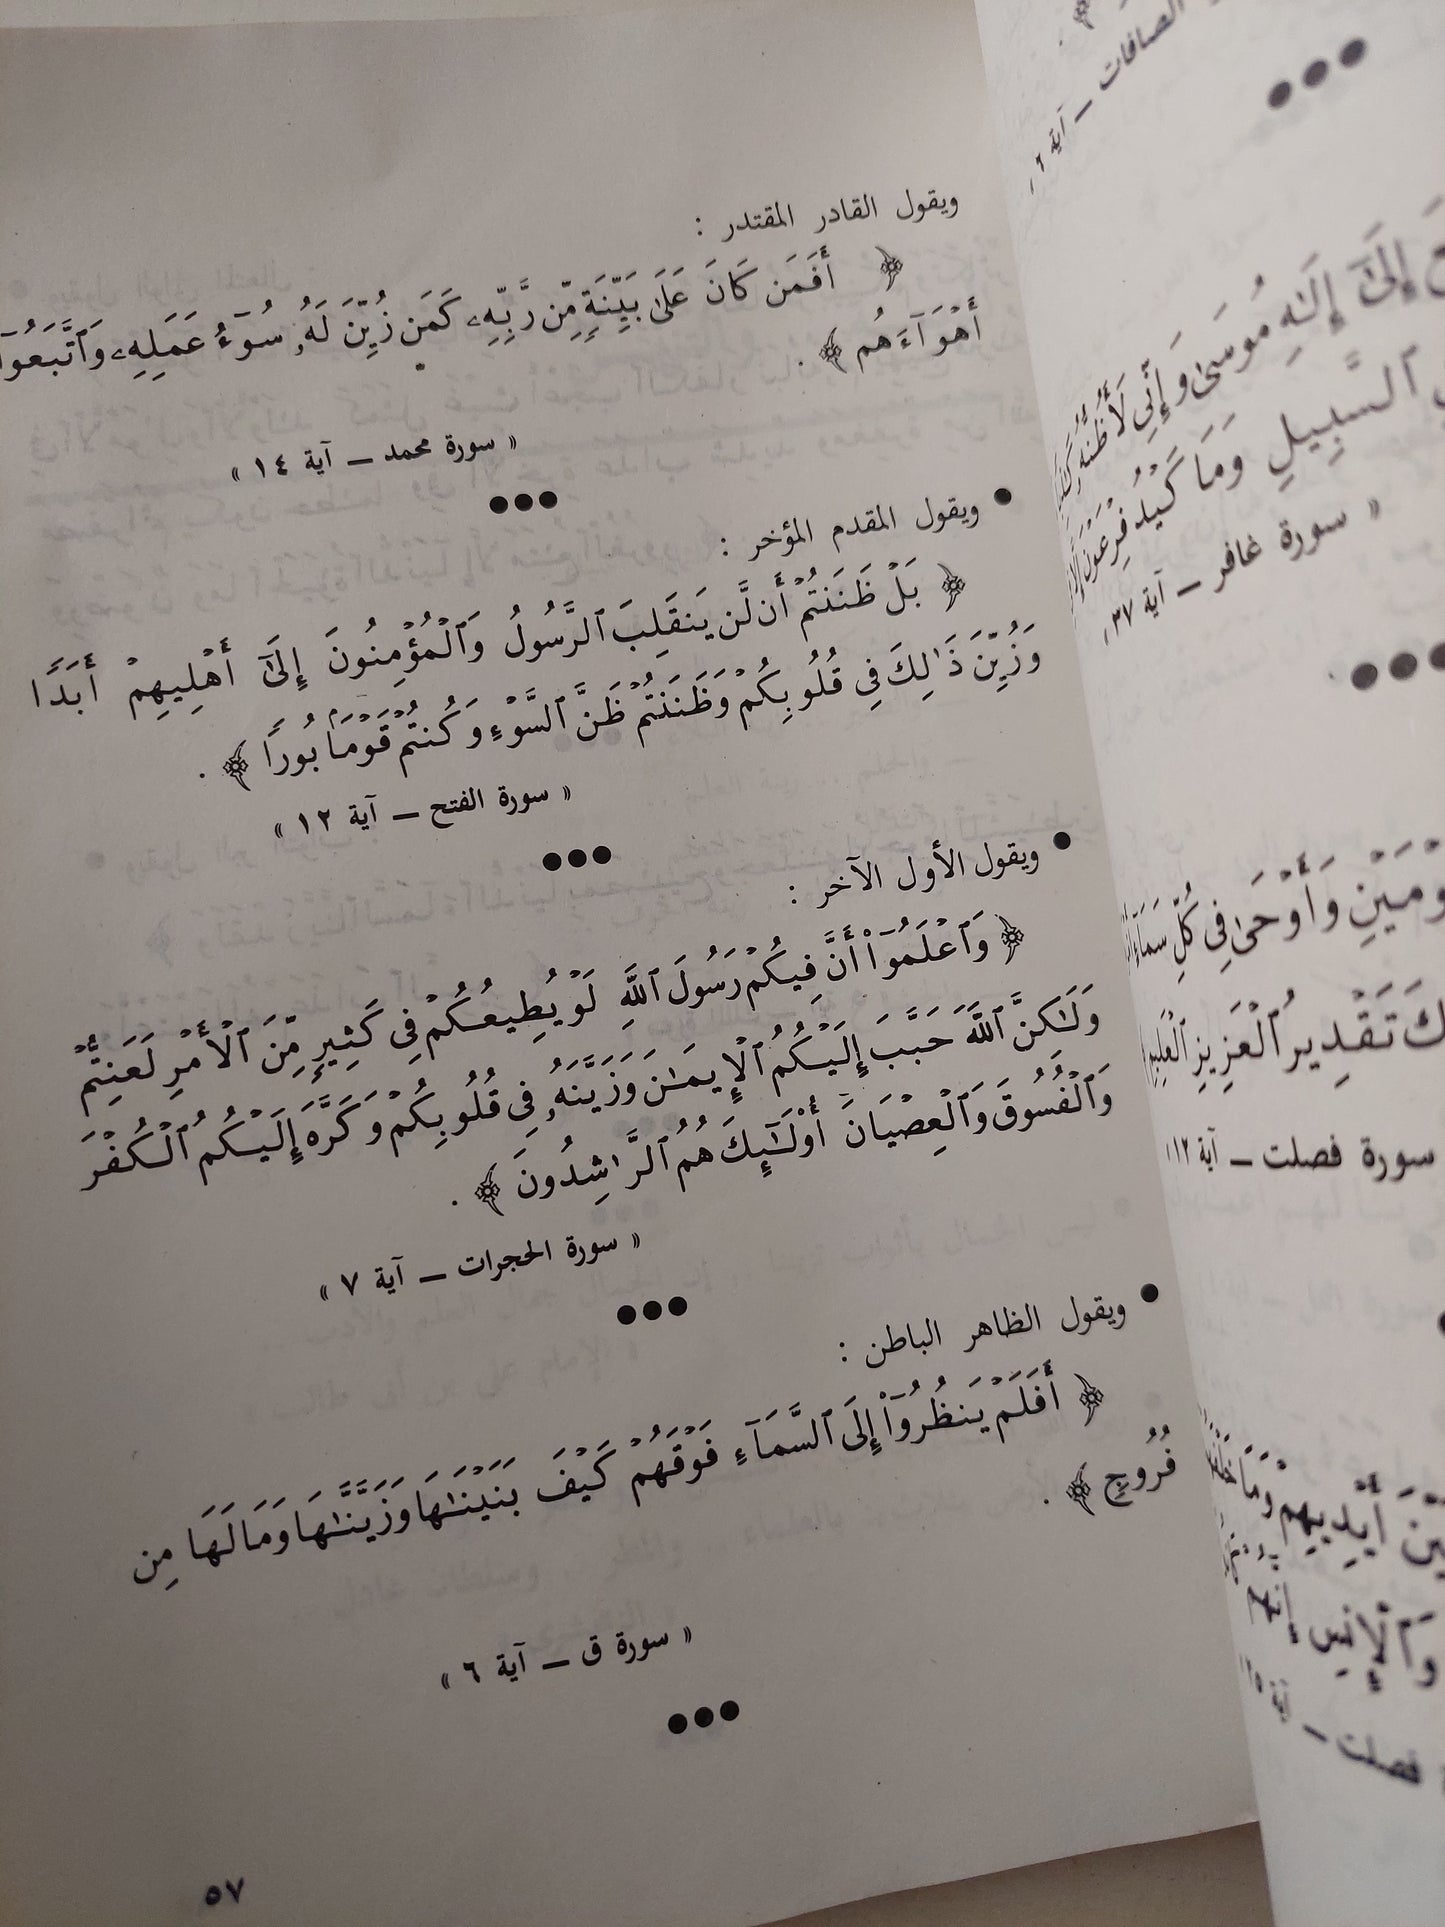 ويقول القادر المقتدر :
﴿ أَفَمَن كَانَ عَلَىٰ بَيِّنَةٍ مِّن رَّبِّهِۦ كَمَن زُيِّنَ لَهُۥ سُوٓءُ عَمَلِهِۦ وَٱتَّبَعُوٓا
أَهْوَآءَهُم ﴾ .
« سورة محمد ــ آية ١٤ »
●●●
● ويقول المقدم المؤخر :
﴿ بَلْ ظَنَنتُمْ أَن لَّن يَنقَلِبَ ٱلرَّسُولُ وَٱلْمُؤْمِنُونَ إِلَىٰٓ أَهْلِيهِمْ أَبَدًا
وَزُيِّنَ ذَٰلِكَ فِى قُلُوبِكُمْ وَظَنَنتُمْ ظَنَّ ٱلسَّوْءِ وَكُنتُمْ قَوْمًۢا بُورًا ﴾ .
« سورة الفتح ــ آية ١٢ »
●●●
● ويقول الأول الآخر :
﴿ وَٱعْلَمُوٓا۟ أَنَّ فِيكُمْ رَسُولَ ٱللَّهِ لَوْ يُطِيعُكُمْ فِى كَثِيرٍ مِّنَ ٱلْأَمْرِ لَعَنِتُّمْ
وَلَٰكِنَّ ٱللَّهَ حَبَّبَ إِلَيْكُمُ ٱلْإِيمَٰنَ وَزَيَّنَهُۥ فِى قُلُوبِكُمْ وَكَرَّهَ إِلَيْكُمُ ٱلْكُفْرَ
وَٱلْفُسُوقَ وَٱلْعِصْيَانَ أُو۟لَٰٓئِكَ هُمُ ٱلرَّٰشِدُونَ ﴾ .
« سورة الحجرات ــ آية ٧ »
●●●
● ويقول الظاهر الباطن :
﴿ أَفَلَمْ يَنظُرُوٓا۟ إِلَى ٱلسَّمَآءِ فَوْقَهُمْ كَيْفَ بَنَيْنَٰهَا وَزَيَّنَّٰهَا وَمَا لَهَا مِن
فُرُوجٍ ﴾ .
« سورة ق ــ آية ٦ »
●●●
٥٧
الصافات ــ آية ٦
●●●
إِلَىٰٓ إِلَٰهِ مُوسَىٰ وَإِنِّى لَأَظُنُّهُۥ
ٱلسَّبِيلِ وَمَا كَيْدُ فِرْعَوْنَ
« سورة غافر ــ آية ٣٧
●●●
وَأَوْحَىٰ فِى كُلِّ سَمَآءٍ
تَقْدِيرُ ٱلْعَزِيزِ ٱلْعَلِيمِ
سورة فصلت ــ آية ١٢
أَيْدِيهِمْ وَمَا
وَٱلْإِنسِ إِنَّهُمْ
فصلت ــ آية ٢٥